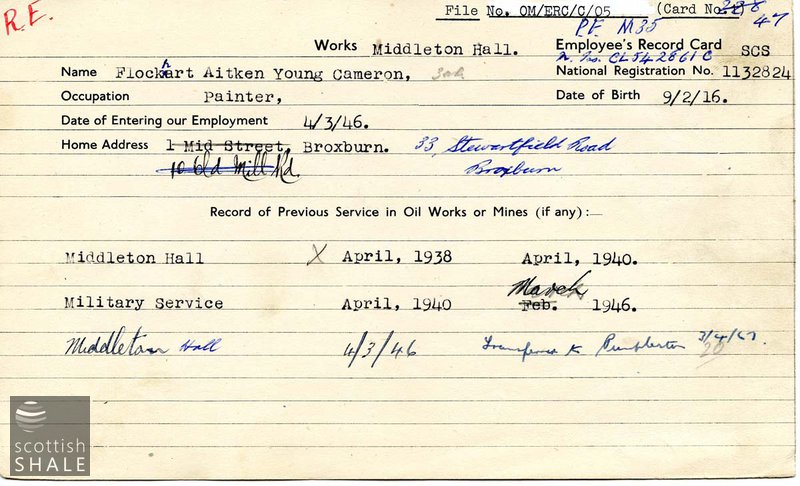 R.F.
File No. OM/ERC/C/05 (Card No. 47
PF M35
Works Middleton Hall. Employee's Record Card SCS
CL542861C
Name Flockhart Aitken Young Cameron, National Registration No. 1132824
Occupation Painter, Date of Birth 9/2/16.
Date of Entering our Employment 4/3/46.
Home Address 1 Mid Street, Broxburn. 33, Stewartfield Road
10 Old Mill Rd. Broxburn
Record of Previous Service in Oil Works or Mines (if any):—
Middleton Hall X April, 1938 April, 1940.
March
Military Service April, 1940 Feb. 1946.
Middleton Hall 4/3/46 Transferred to Pumpherston 3/4/67.
20
scottish
SHALE